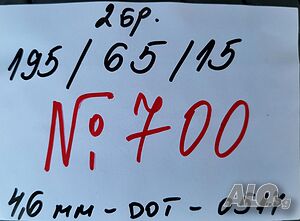 2бр.
195/65/15
№ 700
4,6 мм - DOT -
ALO.bg